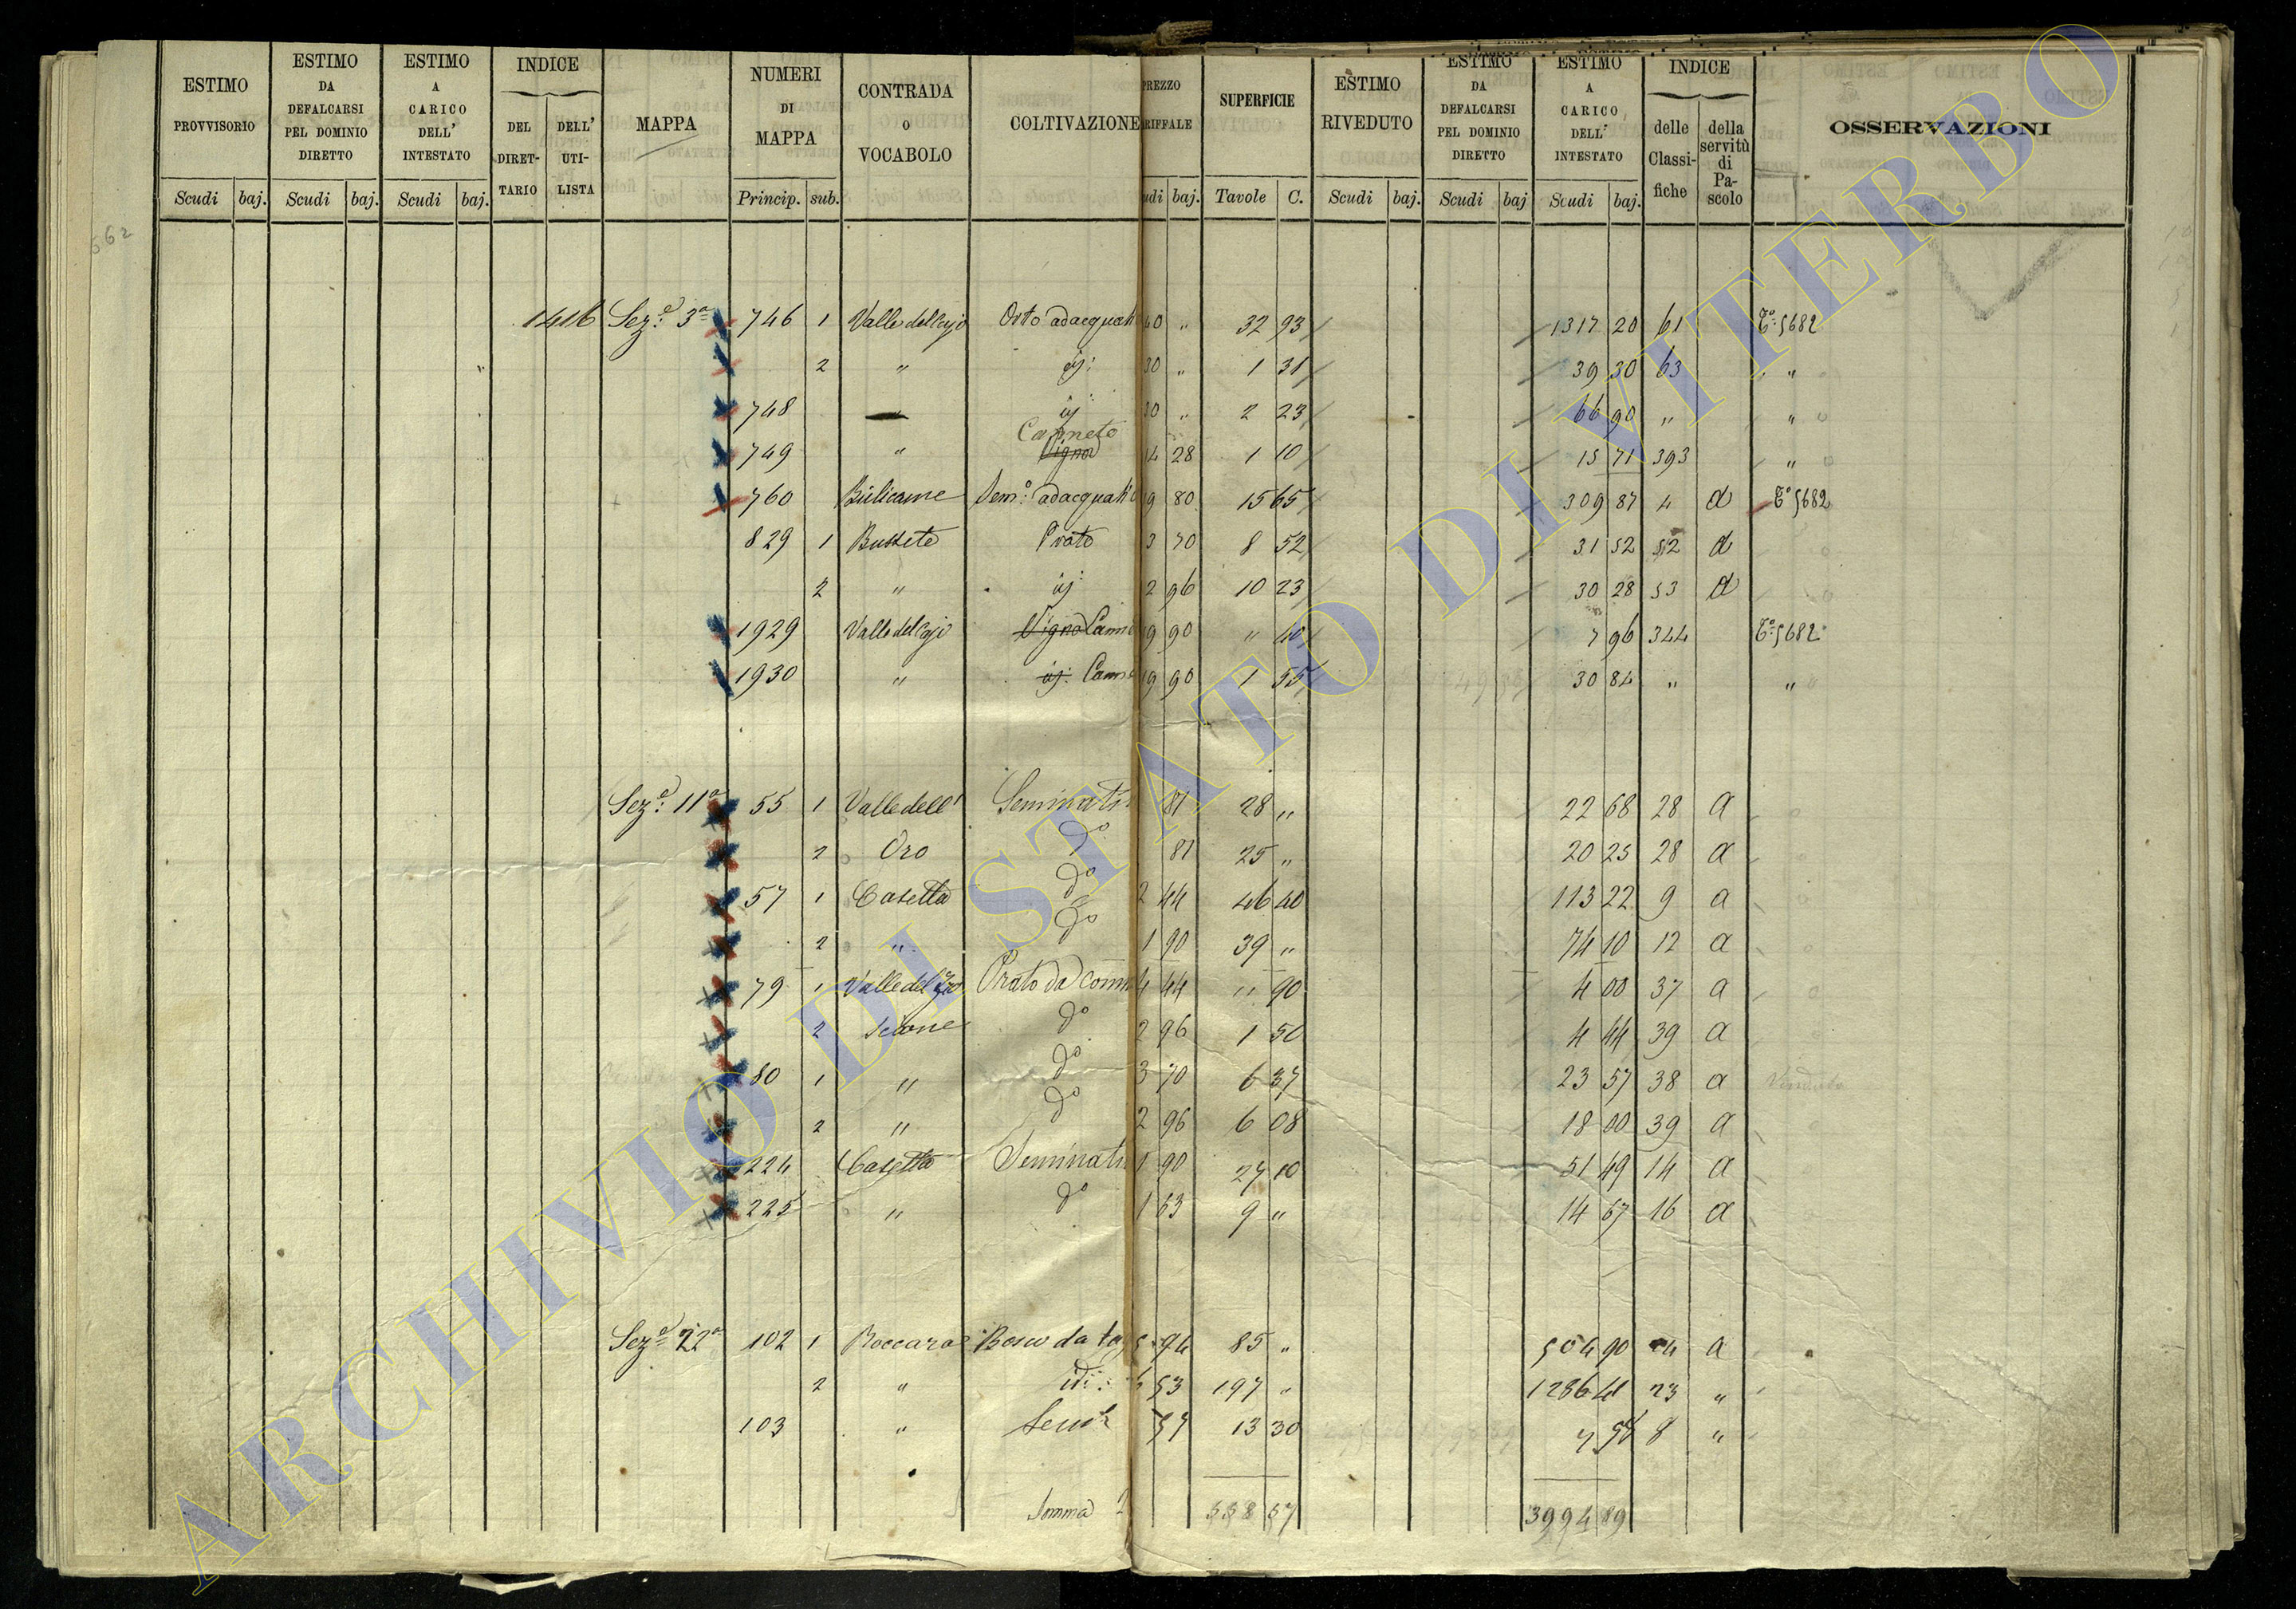 ESTIMO PROVVISORIO | ESTIMO DA DEFALCARSI PEL DOMINIO DIRETTO | ESTIMO A CARICO DELL' INTESTATO | INDICE DEL DIRET-TARIO | DELL' UTI-LISTA | MAPPA | NUMERI DI MAPPA | CONTRADA O VOCABOLO | COLTIVAZIONE | PREZZO RIFFALE | SUPERFICIE | ESTIMO RIVEDUTO | ESTIMO DA DEFALCARSI PEL DOMINIO DIRETTO | ESTIMO A CARICO DELL' INTESTATO | INDICE delle Classi-fiche | della servitù di Pa-scolo | OSSERVAZIONI
Scudi baj. Scudi baj. Scudi baj. Princip. sub. udi baj. Tavole C. Scudi baj. Scudi baj Scudi baj.
662
1416 Sez.e 3a 746 1 Valle del Cajo Orto adacquat 40 " 32 93 1317 20 61 To 5682
2 " id: 30 " 1 31 39 30 63 "
748 " id 30 " 2 23 66 90 " "
Canneto
749 " Vigna 14 28 1 10 15 71 393 "
760 Bulicame Sem.o adacquat 19 80 15 65 309 87 4 a To 5682
829 1 Bussete Prato 3 70 8 52 31 52 52 a
2 " id: 2 96 10 23 30 28 53 a
1929 Valle del Cajo Vigna Cann 19 90 " 40 7 96 344 To 5682
1930 " id: Cann 19 90 1 55 30 84 " "
Sez.e 11a 55 1 Valle dell' Seminati 81 28 " 22 68 28 a
2 Oro do 81 25 " 20 25 28 a
57 1 Casetta do 2 44 46 40 113 22 9 a
2 " do 1 90 39 " 74 10 12 a
79 1 Valle del Prato da Comm 4 44 " 90 4 00 37 a
2 do 2 96 1 50 4 44 39 a
80 1 " do 3 70 6 37 23 57 38 a
2 " do 2 96 6 08 18 00 39 a
224 Casetta Seminati 1 90 27 10 51 49 14 a
225 " do 1 63 9 " 14 67 16 a
Sez.e 22a 102 1 Roccara Bosco da tag 5 94 85 " 504 90 a
2 " id: 6 53 197 " 1286 41 23 "
103 " Sem.e 57 13 30 7 58 8 "
Somma 558 57 3994 89
ARCHIVIO DI STATO DI VITERBO